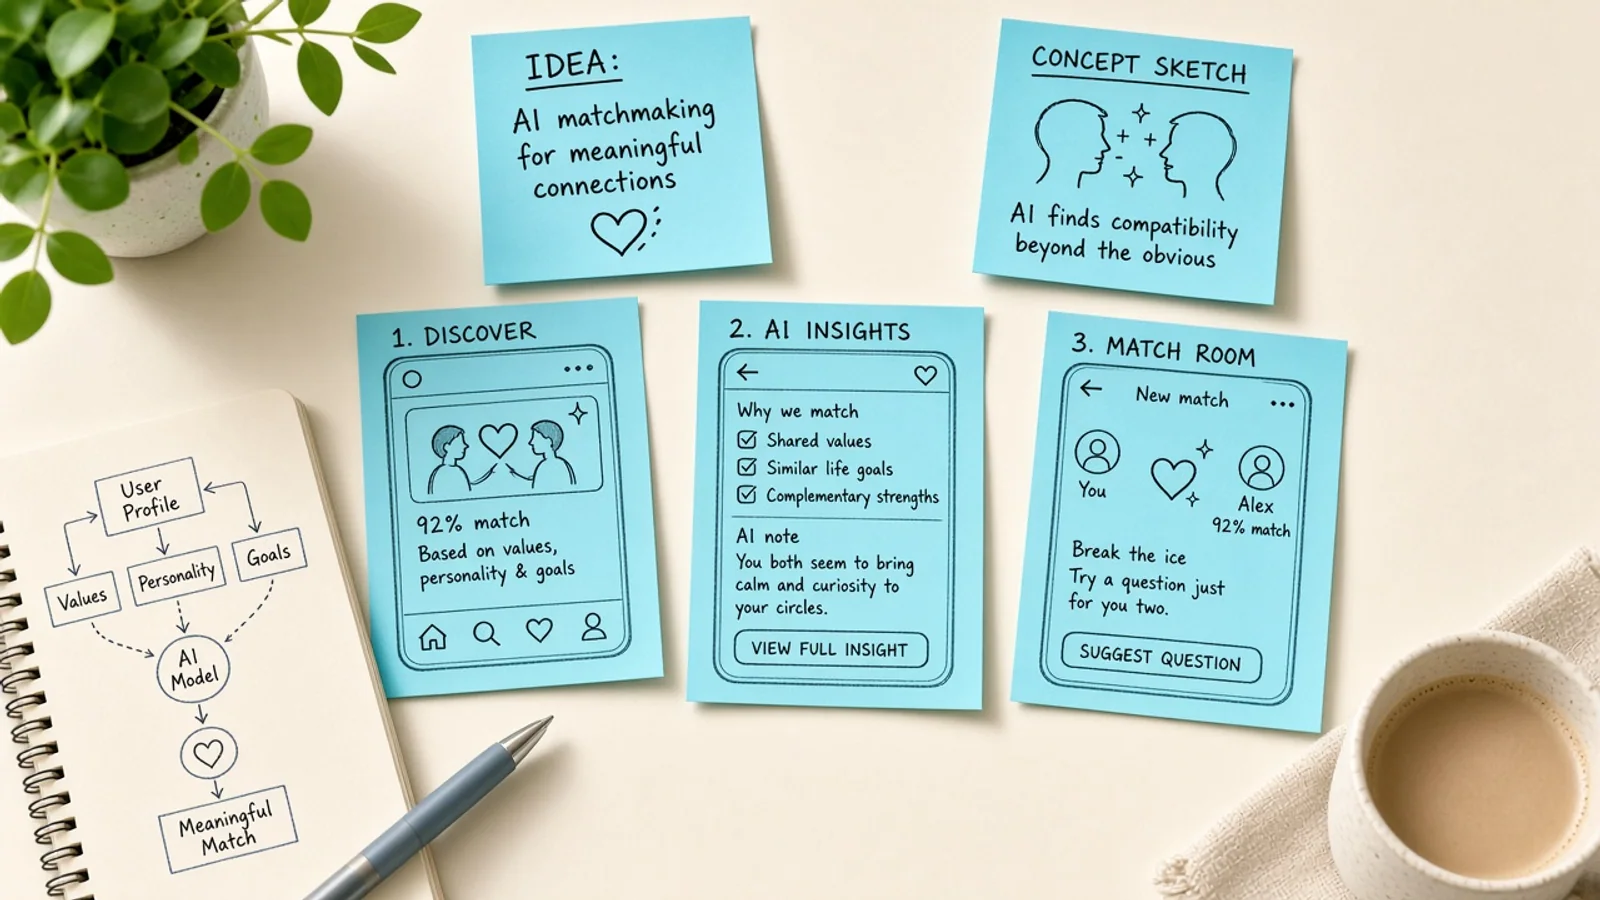 IDEA:
AI matchmaking
for meaningful
connections
CONCEPT SKETCH
AI finds compatibility
beyond the obvious
1. DISCOVER
92% match
Based on values,
personality & goals
2. AI INSIGHTS
Why we match
Shared values
Similar life goals
Complementary strengths
AI note
You both seem to bring
calm and curiosity to
your circles.
VIEW FULL INSIGHT
3. MATCH ROOM
New match
You
Alex
92% match
Break the ice
Try a question just
for you two.
SUGGEST QUESTION
User
Profile
Values
Personality
Goals
AI
Model
Meaningful
Match